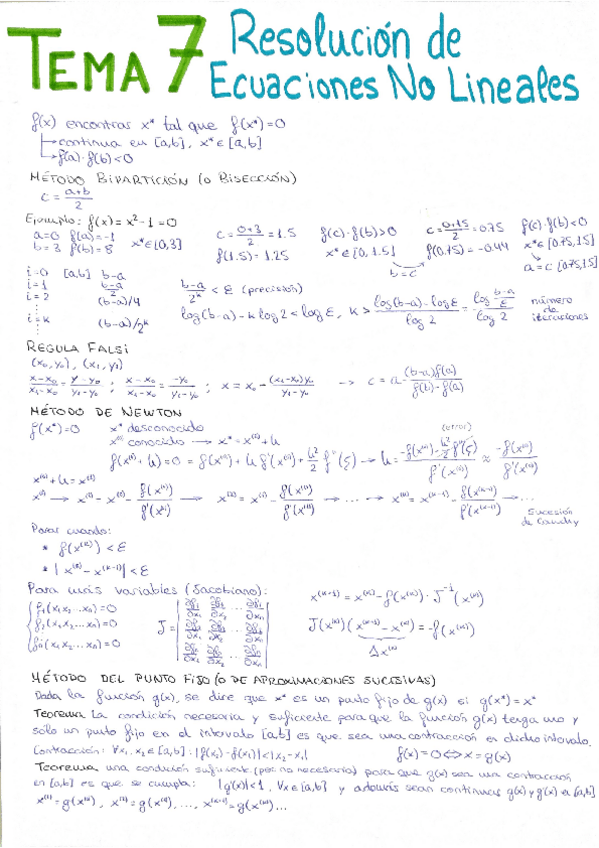 TEMA 7 Resolución de Ecuaciones No Lineales
f(x) encontrar x* tal que f(x*)=0
continua en [a,b], x*∈[a,b]
f(a)·f(b)<0
MÉTODO BIPARTICIÓN (o BISECCIÓN)
c = (a+b)/2
Ejemplo: f(x) = x²-1 = 0
a=0 f(a)=-1
b=3 f(b)=8
x*∈[0,3]
c = (0+3)/2 = 1.5
f(1.5) = 1.25
f(c)·f(b)>0
x*∈[0,1.5]
b=c
c = (0+1.5)/2 = 0.75
f(0.75) = -0.44
f(c)·f(b)<0
x*∈[0.75,1.5]
a=c [0.75,1.5]
i=0 [a,b] b-a
i=1 (b-a)/2
i=2 (b-a)/4
i=k (b-a)/2^k
(b-a)/2^k < ε (precisión)
log(b-a) - k log 2 < log ε, k > (log(b-a) - log ε)/log 2 = log((b-a)/ε)/log 2 número de iteraciones
REGULA FALSI
(x₀,y₀), (x₁,y₁)
(x-x₀)/(x₁-x₀) = (y-y₀)/(y₁-y₀) ; (x-x₀)/(x₁-x₀) = -y₀/(y₁-y₀) ; x = x₀ - (x₁-x₀)y₀/(y₁-y₀) → c = a - (b-a)f(a)/(f(b)-f(a))
MÉTODO DE NEWTON
f(x*)=0 x* desconocido
conocido → 
(error)
Parar cuando:
* f(x^(k)) < ε
* |x^(k) - x^(k-1)| < ε
Sucesión de Cauchy
Para más variables (Jacobiano):
f₁(x₁x₂...xₙ)=0
f₂(x₁x₂...xₙ)=0
fₙ(x₁x₂...xₙ)=0
J =
x^(k+1) = x^(k) - f(x^(k))·J⁻¹(x^(k))
J(x^(k))(x^(k+1) - x^(k)) = -f(x^(k))
Δx^(k)
MÉTODO DEL PUNTO FIJO (o DE APROXIMACIONES SUCESIVAS)
Dada la función g(x), se dice que x* es un punto fijo de g(x) si g(x*) = x*
Teorema La condición necesaria y suficiente para que la función g(x) tenga uno y
sólo un punto fijo en el intervalo [a,b] es que sea una contracción en dicho intervalo.
Contracción: ∀x₁,x₂∈[a,b] : |f(x₂)-f(x₁)|<|x₂-x₁| f(x)=0 ⇔ x=g(x)
Teorema una condición suficiente (pero no necesaria) para que g(x) sea una contracción
en [a,b] es que se cumpla: |g'(x)|<1, ∀x∈[a,b] y además sean continuas g(x) y g'(x) en [a,b]